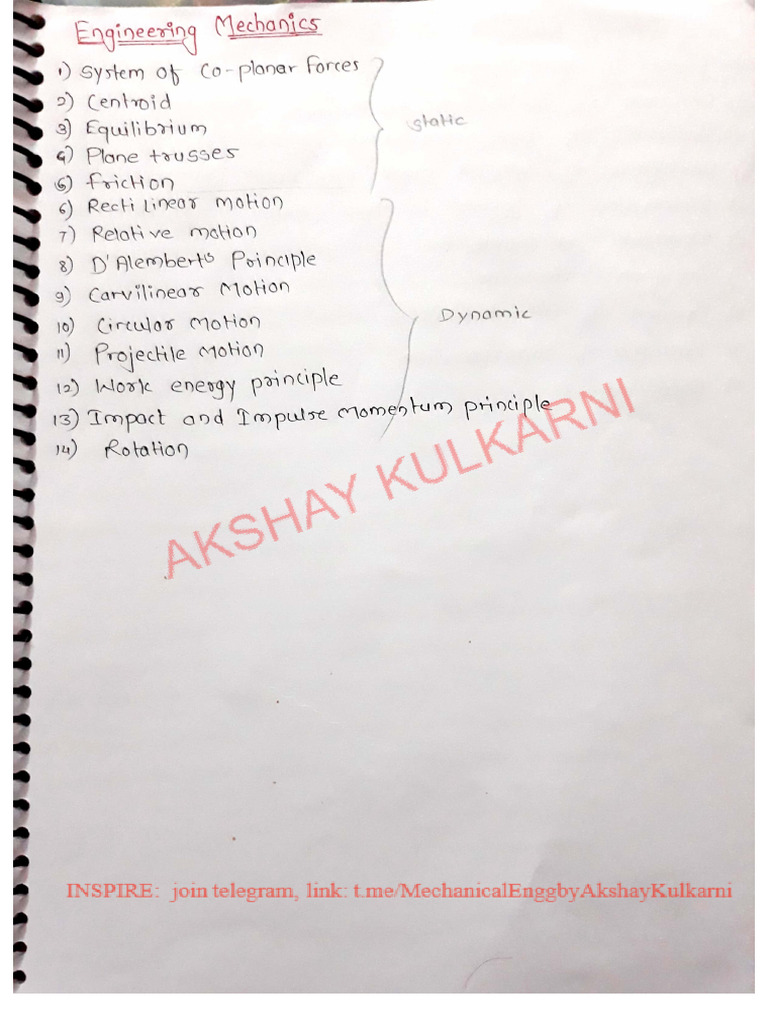 Engineering Mechanics
1) System of Co-planar forces
2) Centroid
3) Equilibrium
static
4) Plane trusses
5) friction
6) Recti linear motion
7) Relative motion
8) D'Alembert's Principle
9) Carvilinear Motion
Dynamic
10) Circular Motion
11) Projectile Motion
12) Work energy principle
13) Impact and Impulse Momentum principle
14) Rotation
AKSHAY KULKARNI
INSPIRE: join telegram, link: t.me/MechanicalEnggbyAkshayKulkarni